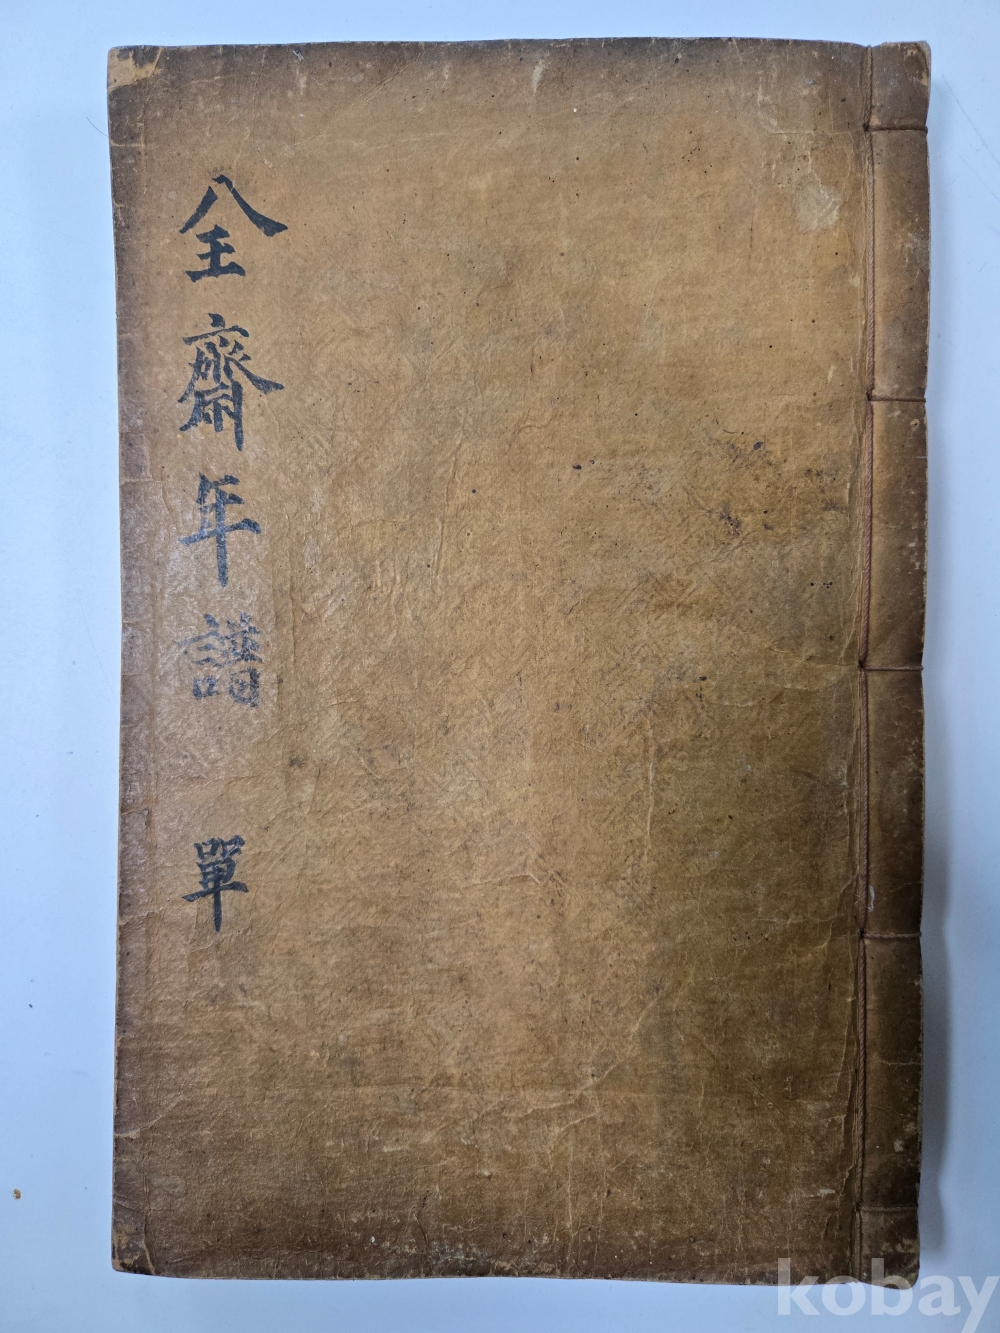 全齋年譜 單
kobay